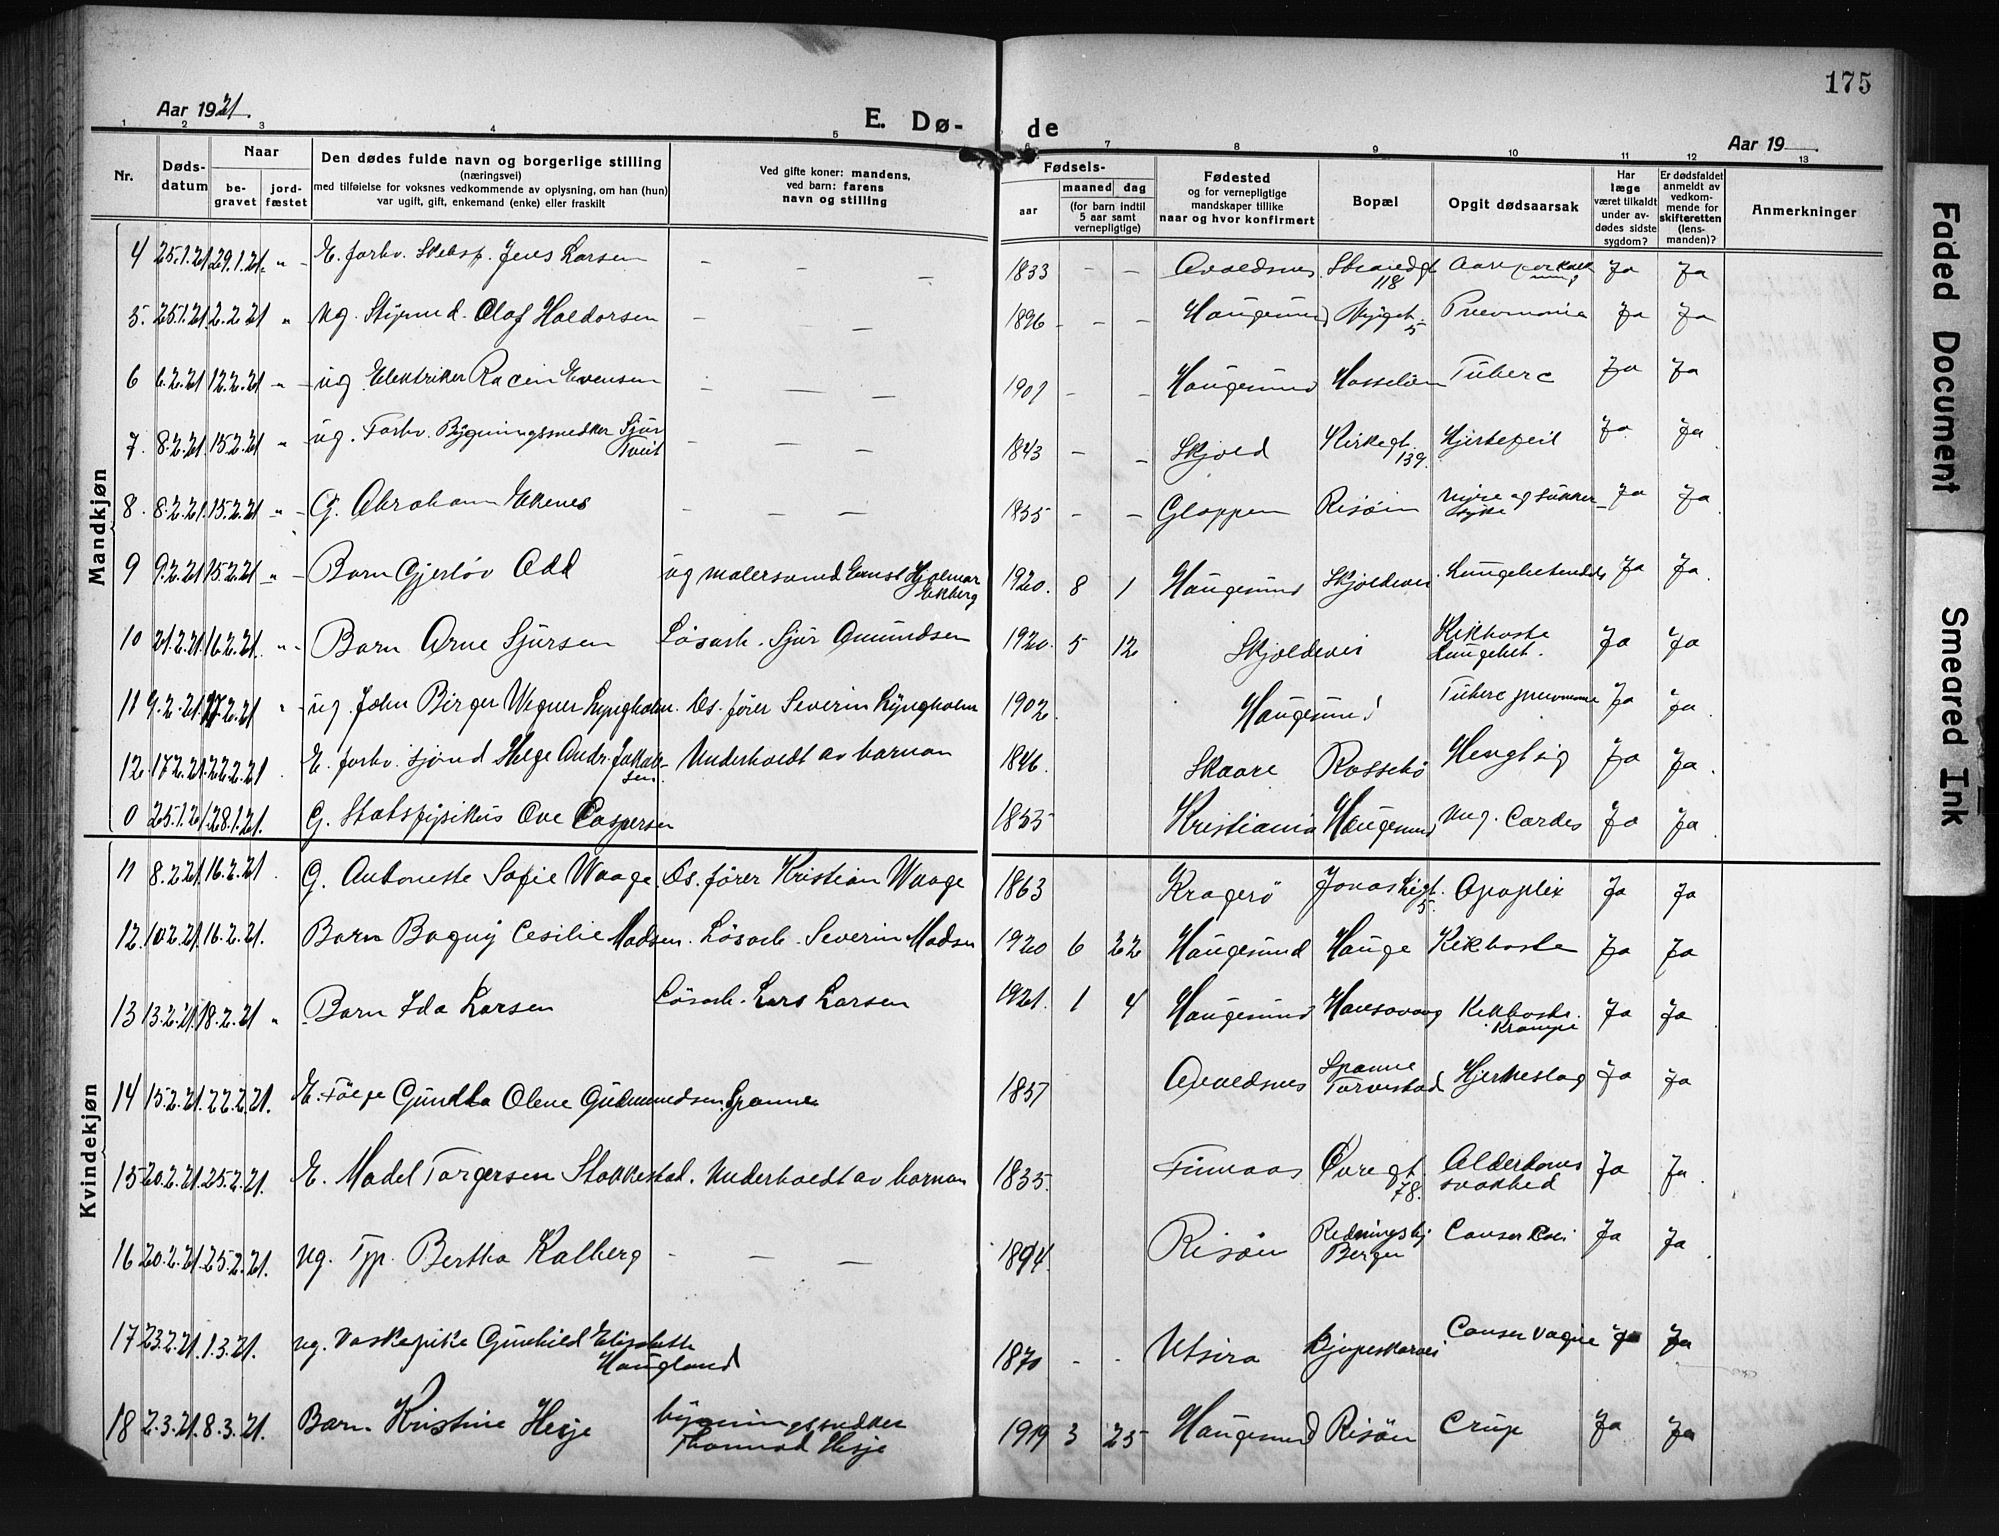 175
Aar 1921.
E. Dø-
de
Aar 19
1 2 3 4 5 6 7 8 9 10 11 12 13
Nr.
Døds-
datum
Naar
be-
gravet
jord-
fæstet
Den dødes fulde navn og borgerlige stilling
(næringsvei)
med tilføielse for voksnes vedkommende av oplysning, om han (hun)
var ugift, gift, enkemand (enke) eller fraskilt
Ved gifte koner: mandens,
ved barn: farens
navn og stilling
Fødsels-
aar
maaned
dag
(for barn indtil
5 aar samt
vernepligtige)
Fødested
og for vernepligtige
mandskaper tillike
naar og hvor konfirmert
Bopæl
Opgit dødsaarsak
Har
læge
været tilkaldt
under av-
dødes sidste
sygdom?
Er dødsfaldet
anmeldt av
vedkom-
mende for
skifteretten
(lens-
manden)?
Anmerkninger
Mandkjøn
4 25.1.21 29.1.21. " - E. forhv. Jens Larsen - - - 1833 - - Avaldsnes Strandgt 118 Ja Ja
5. 25.1.21 2.2.21 " Ug. Styrmd. Olaf Haldorsen - - - 1896 - - - Haugesund 5 Pneumonia Ja Ja
6 6.2.21 12.2.21 " - ug Elektriker Evensen - - - 1901 - - Haugesund Hasseløen Tuberc Ja Ja
7. 8.2.21 15.2.21 " ug. Forhv. Bygningssnedker Sjur Tveit - - - 1843 - - Skjold Kirkegt. 139. Hjertefeil Ja Ja
8. 8.2.21. 15.2.21 " - G. Abraham Ekenes - - - 1855 - - Gloppen Risøin nyre og sukker syke Ja Ja
9 9.2.21 15.2.21 " - Barn Odd ug malersvend Ernst Hjalmar Ekberg 1920. 8 1 Haugesund Skjoldevei Ja Ja.
10 21.2.21. 16.2.21. " - Barn Arne Sjursen Løsarb. Sjur Amundsen 1920. 5 12 Skjoldevei Kikhoste Lungebet. Ja Ja
11 9.2.21. 17.2.21 " - ug. John Birger Wegner Lyngholm. Ds. fører Severin Lyngholm 1902 Haugesund Tuberc pneumonie Ja Ja.
12 17.2.21. 22.2.21 E. forhv. Helge Andr. Jakobsen Underholdt av barnan 1846. Skaare Rossebø Ja Ja.
0 25.1.21. 28.1.21. G. Statsfysikus Ove Caspersen 1855 Kristiania Haugesund Ja Ja.
Kvindekjøn
11 8.2.21. 16.2.21. G. Antonette Sofie Waage Ds. fører Kristian Waage 1863 Kragerø 5. Apoplex Ja Ja
12. 10.2.21. 16.2.21. Barn Cesilie Madsen. Løsarb. Severin Madsen 1920 6 22 Haugesund Hauge Kikhoste Ja Ja
13 13.2.21. 18.2.21 " Barn Ida Larsen Løsarb. Lars Larsen 1921. 1 4 Haugesund Hansavaag Kikhoste. Krampe Ja Ja
14 15.2.21. 22.2.21. E. Olene Gudmundsen Spanne 1857 Avaldsnes Spanne Torvestad Hjerteslag Ja Ja
15 20.2.21. 25.2.21. E. Madel Torgersen Stakkestad. Underholdt av barnan 1835. Finnaas Øvregt. 78. Alderdomssvakhed Ja Ja.
16 20.2.21. 25.2.21. ug. Typ. Bertha Kalberg - - 1894. Risøen Bergen Ja Ja.
17 23.2.21. 1.3.21. ug. Vaskepike Gunhild Elisabeth Haugland 1870 - - Utsira Ja Ja
18 2.3.21. 8.3.21. Barn Kristine Hesje bygningssnedker Hesje 1919 3 25 Haugesund Risøen Crup Ja Ja
Faded Document
Smeared Ink